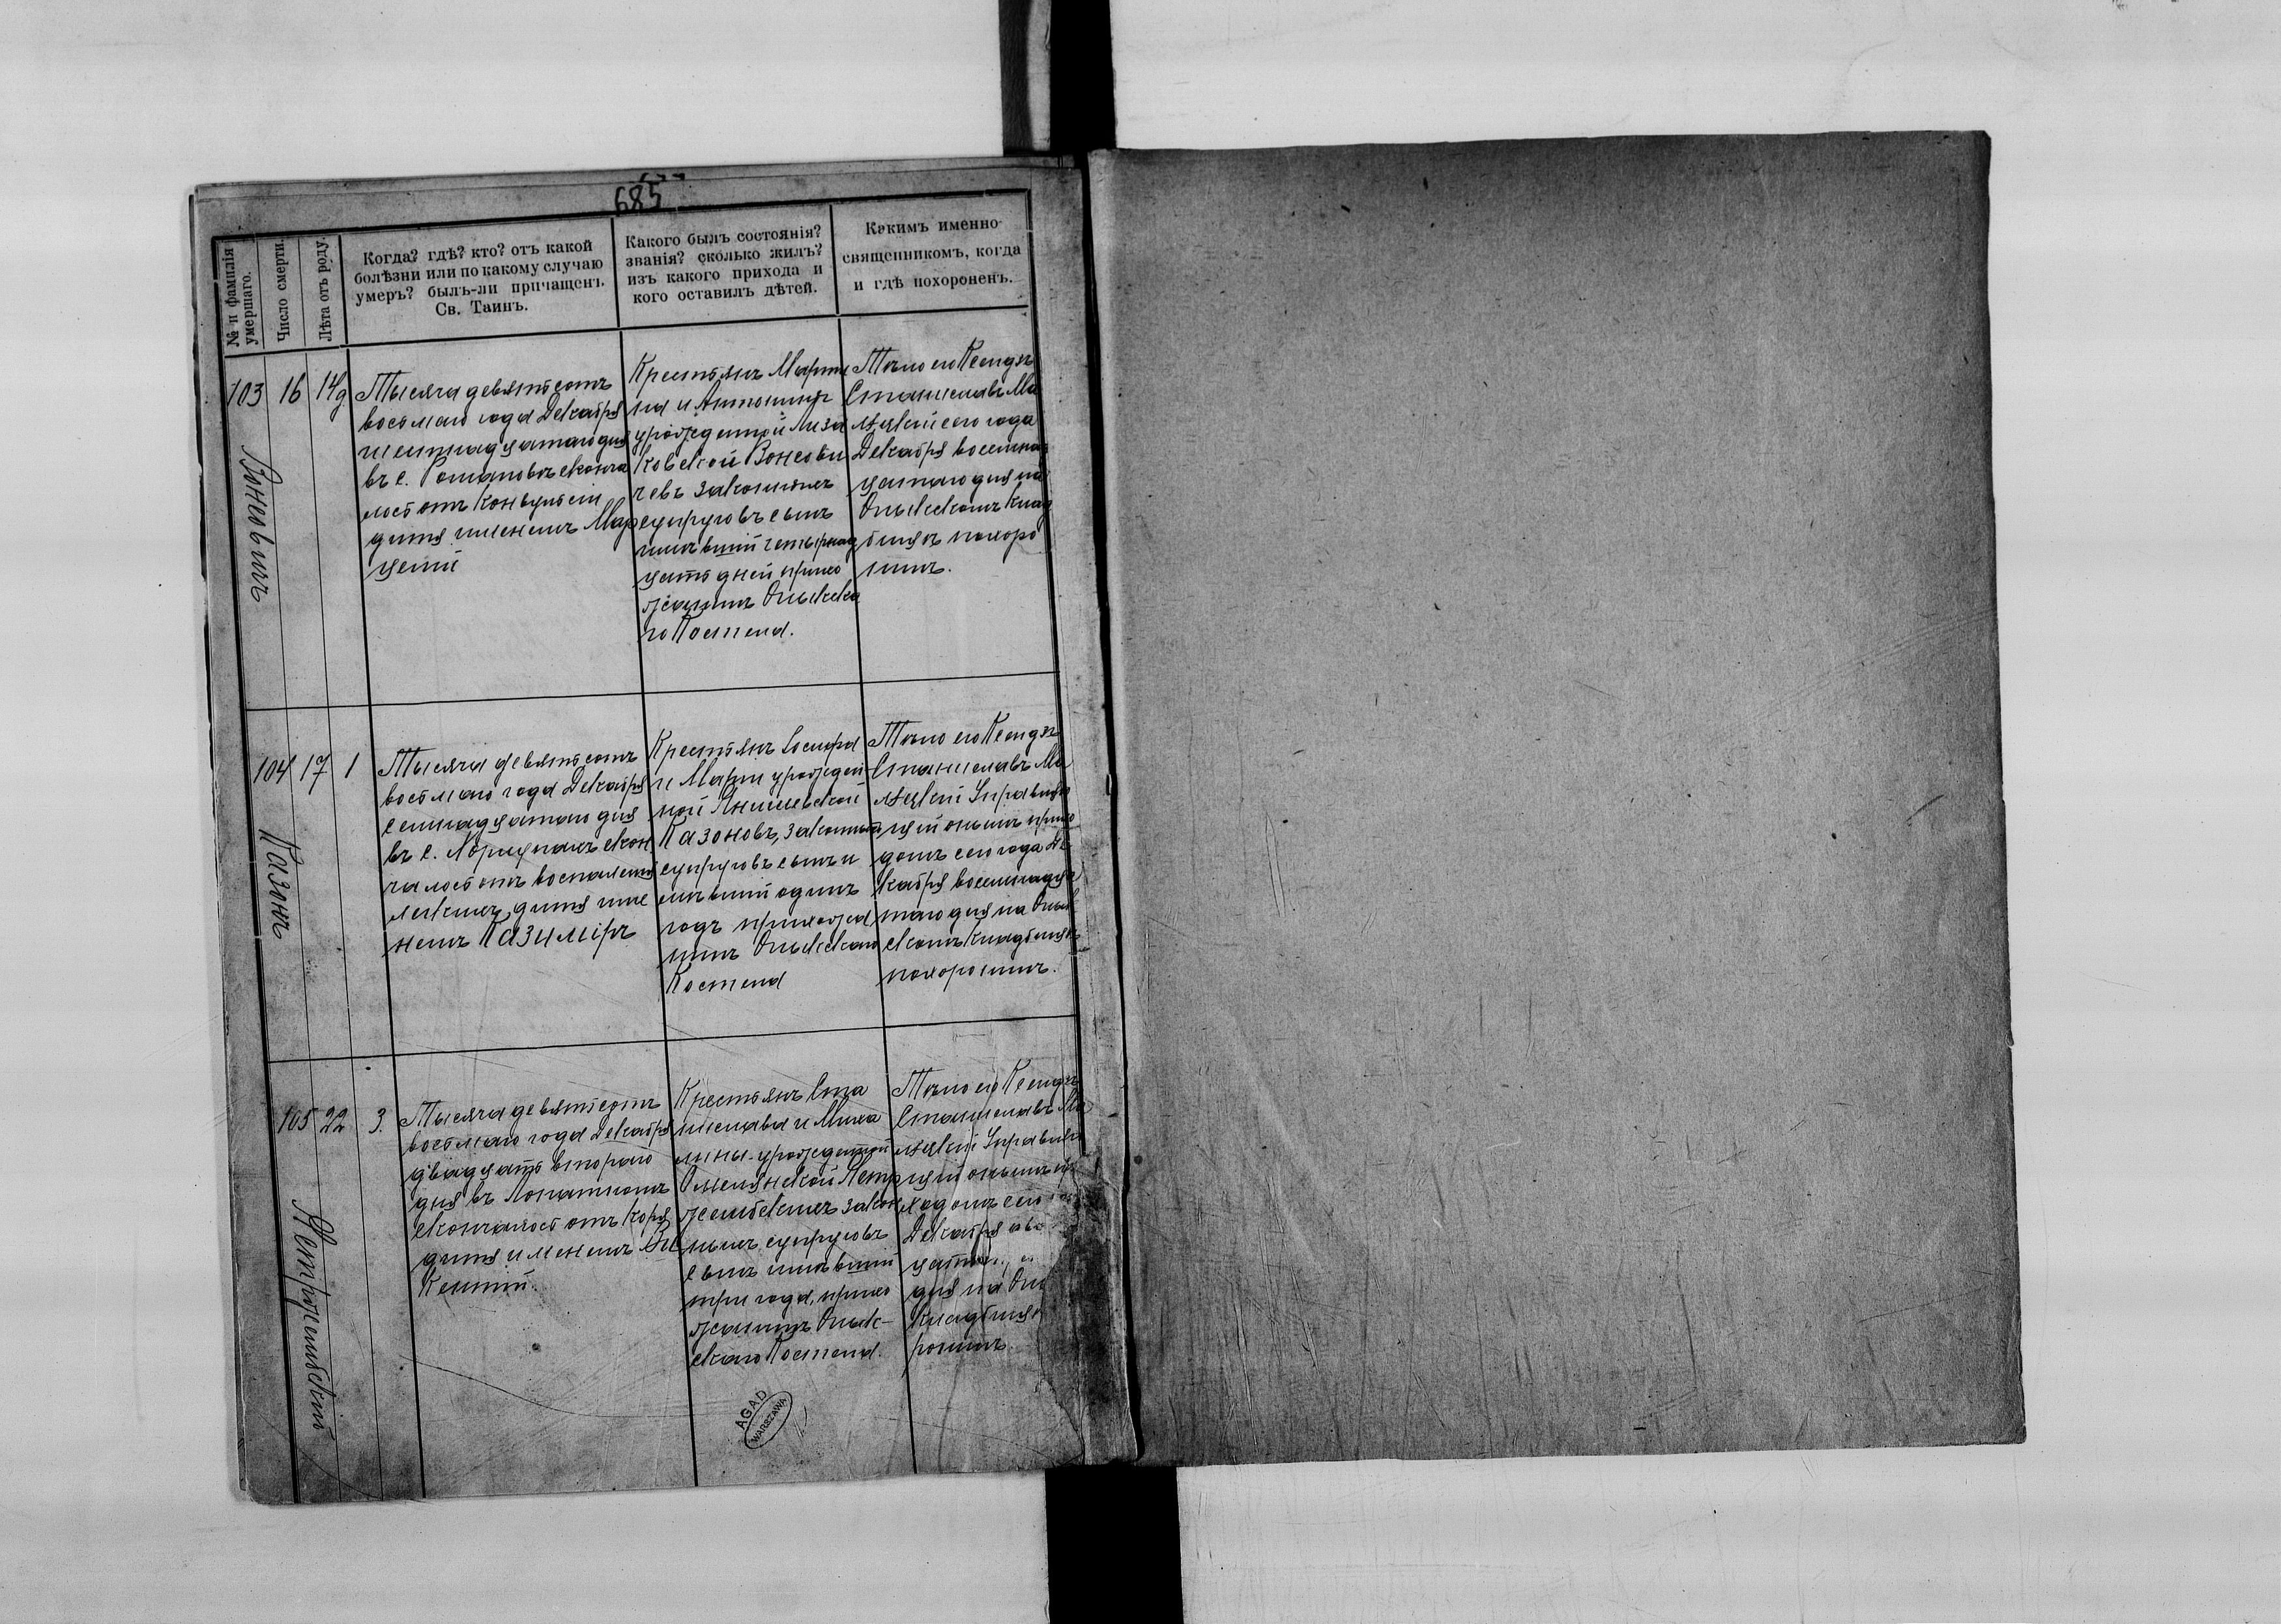 685
№ и фамилія
умершаго.
Число смерти.
Лѣта отъ роду.
Когда? гдѣ? кто? отъ какой
болѣзни или по какому случаю
умеръ? былъ-ли причащенъ
Св. Таинъ.
Какого былъ состоянія?
званія? сколько жилъ?
изъ какого прихода и
кого оставилъ дѣтей.
Какимъ именно
священникомъ, когда
и гдѣ похороненъ.
103
16
14д
Тысяча девятьсотъ
восьмаго года Декабря
шестнадцатаго дня
въ с. Романовѣ сконча
лось отъ конвульсіи
дитя именемъ Мар
целій
Крестьянъ Марти
на и Антонины
урожденной Лиза
ковской Вонсови
чевъ законныхъ
супруговъ сынъ
имѣвшій четырнад
цать дней прихо
жанинъ Олыкска
го Костела.
Тѣло его Ксендзъ
Станиславъ Ма
лецкій сего года
Декабря восемнад
цатаго дня на
Олыкскомъ клад
бищѣ похоро
нилъ.
104
17
1
Казонъ
Тысяча девятьсотъ
восьмаго года Декабря
семнадцатаго дня
въ с. Хорлупахъ скон
чалось отъ воспаленія
легкихъ, дитя име
немъ Казиміръ
Крестьянъ Іосифа
и Маріи урожден
ной Янишевской
Казоновъ, законныхъ
супруговъ сынъ и
мѣвшій одинъ
годъ прихожа
нинъ Олыкскаго
Костела
Тѣло его Ксендзъ
Станиславъ Ма
лецкій Управляю
щій онымъ прихо
домъ сего года Де
кабря восемнадца
таго дня на Олык
скомъ кладбищѣ
похоронилъ.
105
22
3.
Тысяча девятьсотъ
восьмаго года Декабря
двадцать втораго
дня въ
скончалось отъ кори
дитя именемъ
Крестьянъ Ста
нислава и Миха
лины урожденной
законныхъ
супруговъ
сынъ имѣвшій
три года, прихо
жанинъ Олык-
скаго Костела.
Тѣло его Ксендзъ
Станиславъ Ма
лецкій Управляю
щій онымъ при
ходомъ сего
Декабря
дня на
кладбищѣ
ронилъ.
AGAD
WARSZAWA